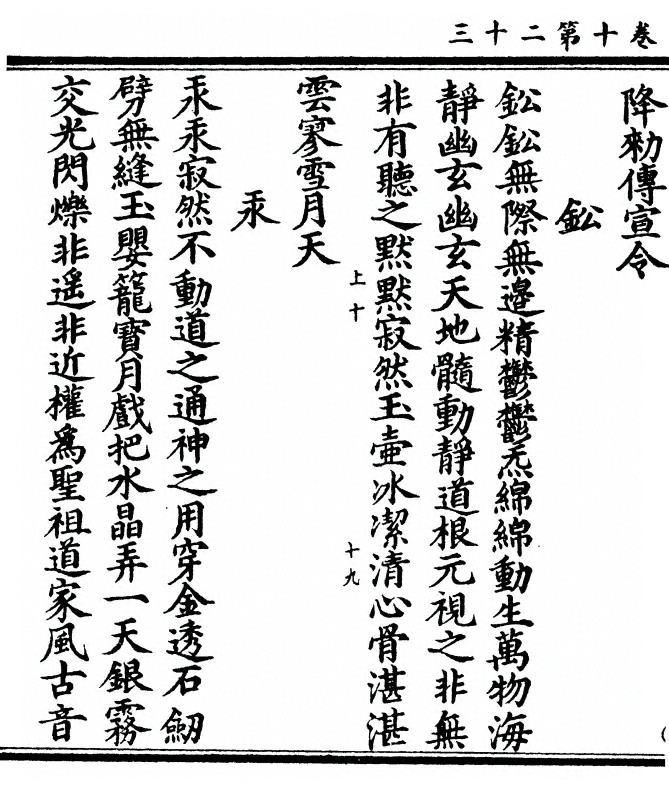 卷十第二十三
降勑傳宣令
鈆
鈆鈆無際無邊精鬱鬱炁綿綿動生萬物海
靜幽玄幽玄天地髓動靜道根元視之非無
非有聽之默默寂然玉壼冰潔清心骨湛湛
上十
十九
雲寥雪月天
汞
汞汞寂然不動道之通神之用穿金透石劒
劈無縫玉嬰籠寶月戲把水晶弄一天銀霧
交光閃爍非遥非近權爲聖祖道家風古音